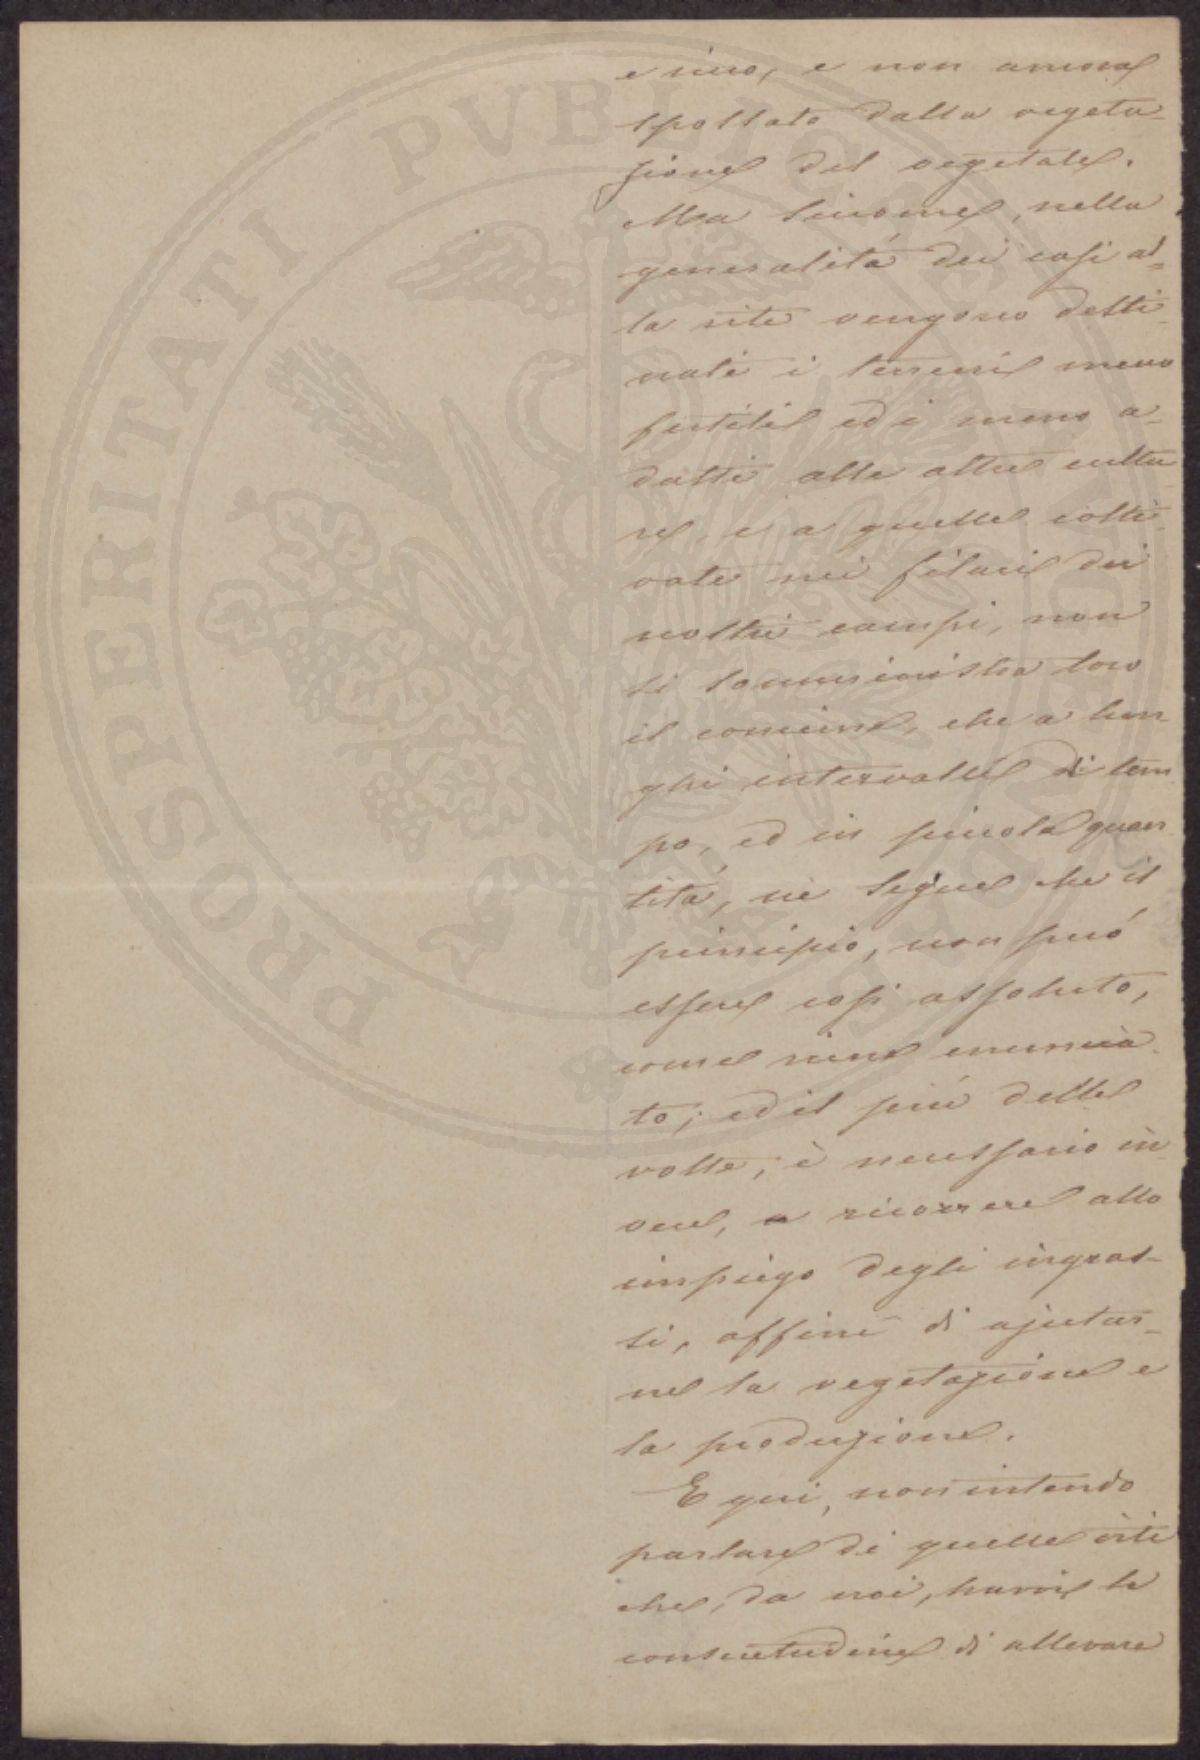 e ricco, e non ancora
spossato dalla vegeta-
zione del vegetale.
Ma siccome, nella
generalità dei casi al-
la vite vengono desti-
nati i terreni meno
fertili ed i meno a-
datti alle altre cultu
re, e a quelle colti-
vate nei filari dei
nostri campi, non
si somministra loro
il concime, che a lun-
ghi intervalli di tem-
po, ed in piccola quan-
tità, ne segue che il
principio, non può
essere così assoluto,
come viene enuncia-
to; ed il più delle
volte, è necessario in-
vece, a ricorrere allo
impiego degli ingras-
si, affine di ajutar-
ne la vegetazione e
la produzione.
E qui, non intendo
parlare di quelle viti
che, da noi, havvi la
consuetudine di allevare
PROSPERITATI PVBLICAE